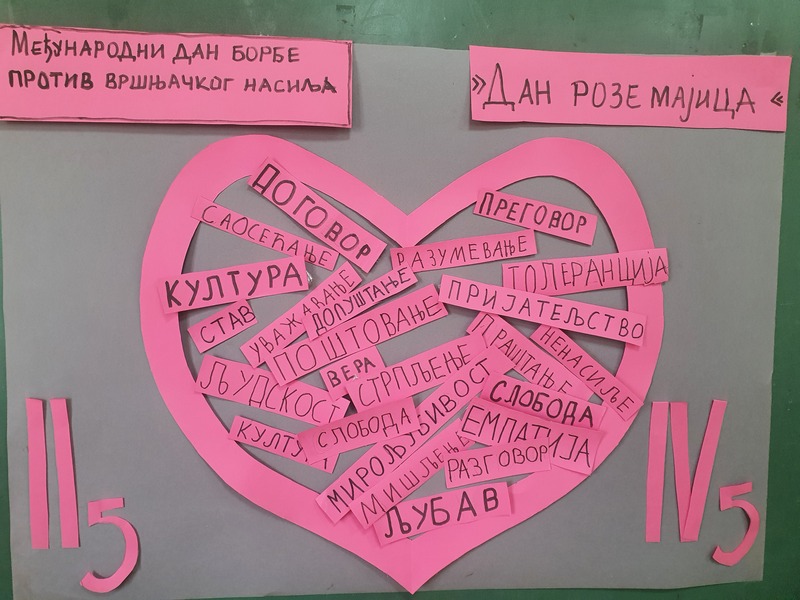 Међународни дан борбе
против вршњачког насиља
»Дан розе мајица«
ДОГОВОР
САОСЕЋАЊЕ
ПРЕГОВОР
РАЗУМЕВАЊЕ
ТОЛЕРАНЦИЈА
КУЛТУРА
УВАЖАВАЊЕ
ДОПУШТАЊЕ
ПРИЈАТЕЉСТВО
СТАВ
ПОШТОВАЊЕ
ПРАШТАЊЕ
НЕНАСИЉЕ
ВЕРА
СТРПЉЕЊЕ
ЉУДСКОСТ
СЛОБОДА
СЛОБОДА
ЕМПАТИЈА
КУЛТУРА
МИРОЉУБИВОСТ
МИШЉЕЊЕ
РАЗГОВОР
ЉУБАВ
II5
IV5